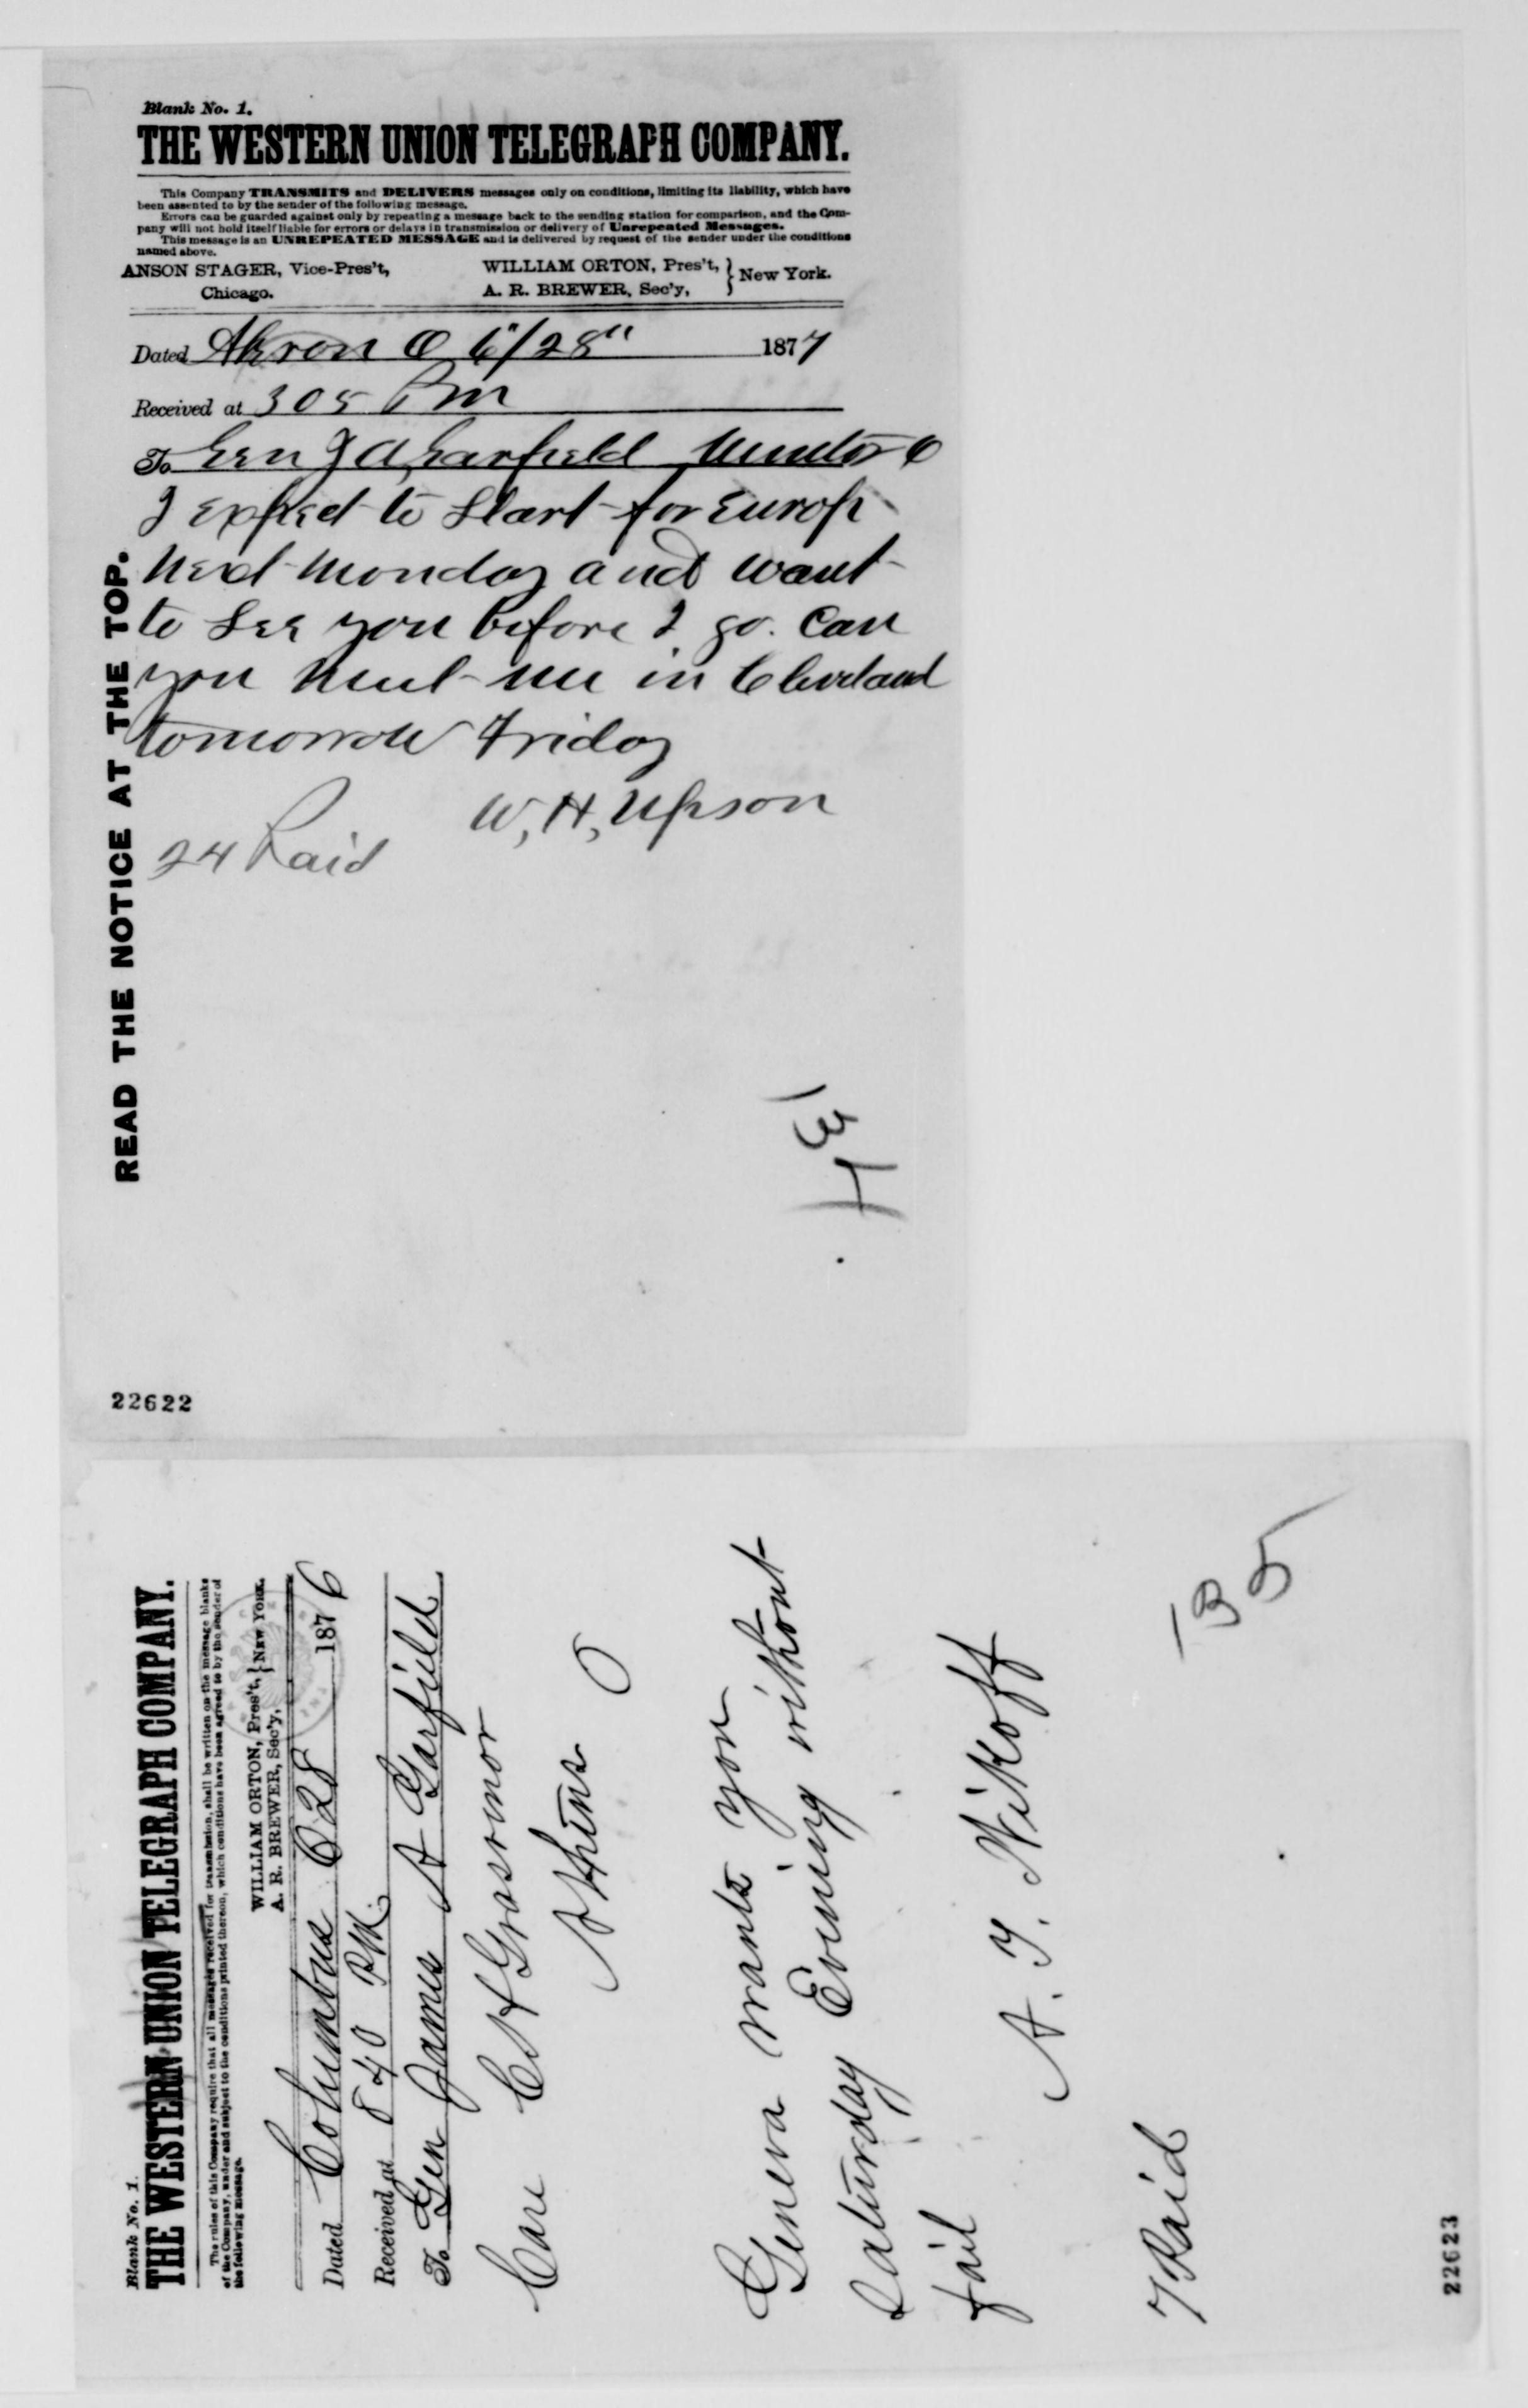 Blank No. 1.
THE WESTERN UNION TELEGRAPH COMPANY.
This Company TRANSMITS and DELIVERS messages only on conditions, limiting its liability, which have
been assented to by the sender of the following message.
Errors can be guarded against only by repeating a message back to the sending station for comparison, and the Com-
pany will not hold itself liable for errors or delays in transmission or delivery of Unrepeated Messages.
This message is an UNREPEATED MESSAGE and is delivered by request of the sender under the conditions
named above.
ANSON STAGER, Vice-Pres't, WILLIAM ORTON, Pres't, } New York.
Chicago. A. R. BREWER, Sec'y,
Dated Akron O 6"/28" 1877
Received at 305 Pm
To Gen J A Garfield Mentor O
I expect to start for Europe
next monday and want
to see you before I go. Can
you meet me in Cleveland
tomorrow Friday
W, H, Upson
24 Paid
READ THE NOTICE AT THE TOP.
22622
Blank No. 1.
THE WESTERN UNION TELEGRAPH COMPANY.
The rules of this Company require that all messages received for transmission, shall be written on the message blanks
of the Company, under and subject to the conditions printed thereon, which conditions have been agreed to by the sender of
the following message.
WILLIAM ORTON, Pres't, } NEW YORK.
A. R. BREWER, Sec'y,
Dated Columbus 6 28 1876
Received at 8 40 PM.
To Gen James A Garfield
Care C H Grosvenor
Athens O
Geneva wants you
Saturday Evening without
fail
A. T. Wikoff
7 Paid
135
22623